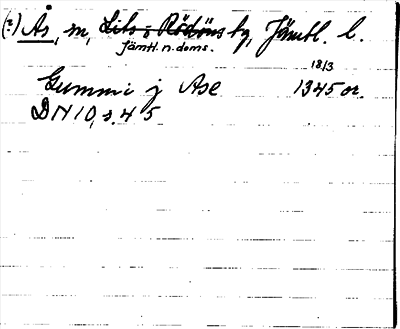 (?) Ås, sn, Lits o Rödöns tg, Jämtl. l.
Jämtl. n. doms.
18/3
Gummi j Ase 1345 or.
DN 10, s. 45